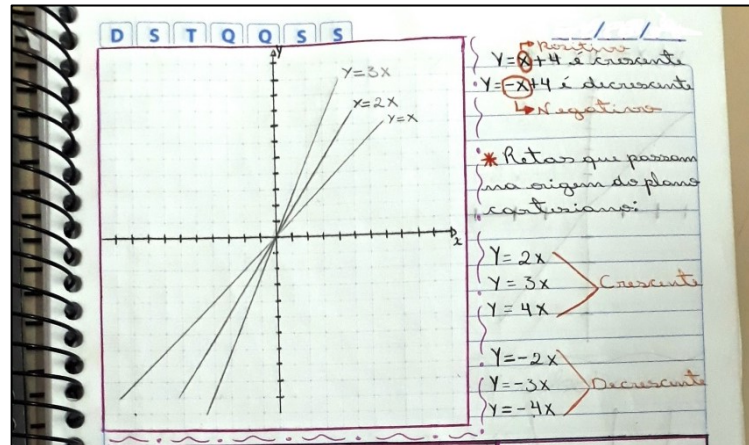 D S T Q Q S S
__/__/__
y
Y=3X
Y=2X
Y=X
x
Positivo
Y=X+4 é crescente
Y=-X+4 é decrescente
Negativo
* Retas que passam
na origem do plano
cartesiano:
Y=2X
Y=3X
Y=4X
Crescente
Y=-2X
Y=-3X
Y=-4X
Decrescente